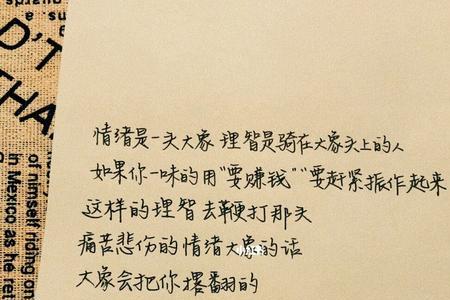 su
s. a
D'T
THA
of himself riding on
in Mexico as he ret
情绪是一头大象 理智是骑在大象头上的人
如果你一味的用“要赚钱”“要赶紧振作起来
这样的理智去鞭打那头
痛苦悲伤的情绪大象的话
大象会把你撂翻的